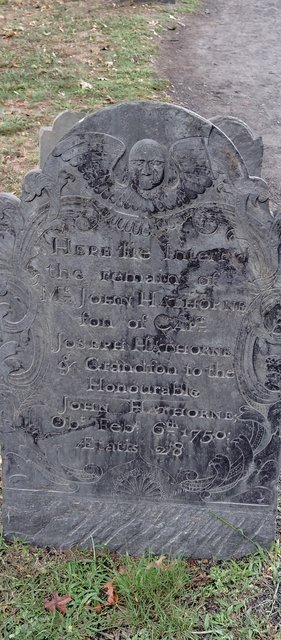 Here lie Interr'd
the remains of
Mr. John Hathorne
son of Capt.
Joseph Hathorne
& Grandson to the
Honourable
John Hathorne
Ob. Feb. 6th. 1750.
Ætatis 28